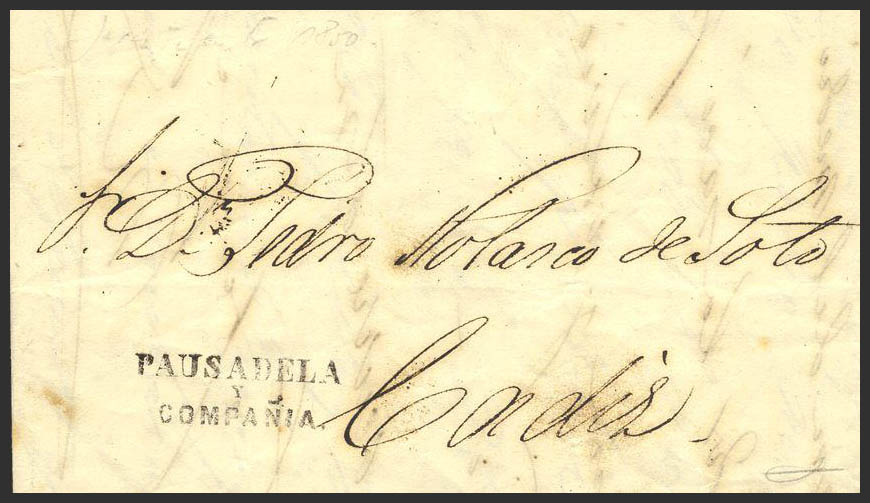 1850
Sr. Dn. Pedro Nolasco de Soto
PAUSADELA
Y
COMPAÑIA.
Cadiz